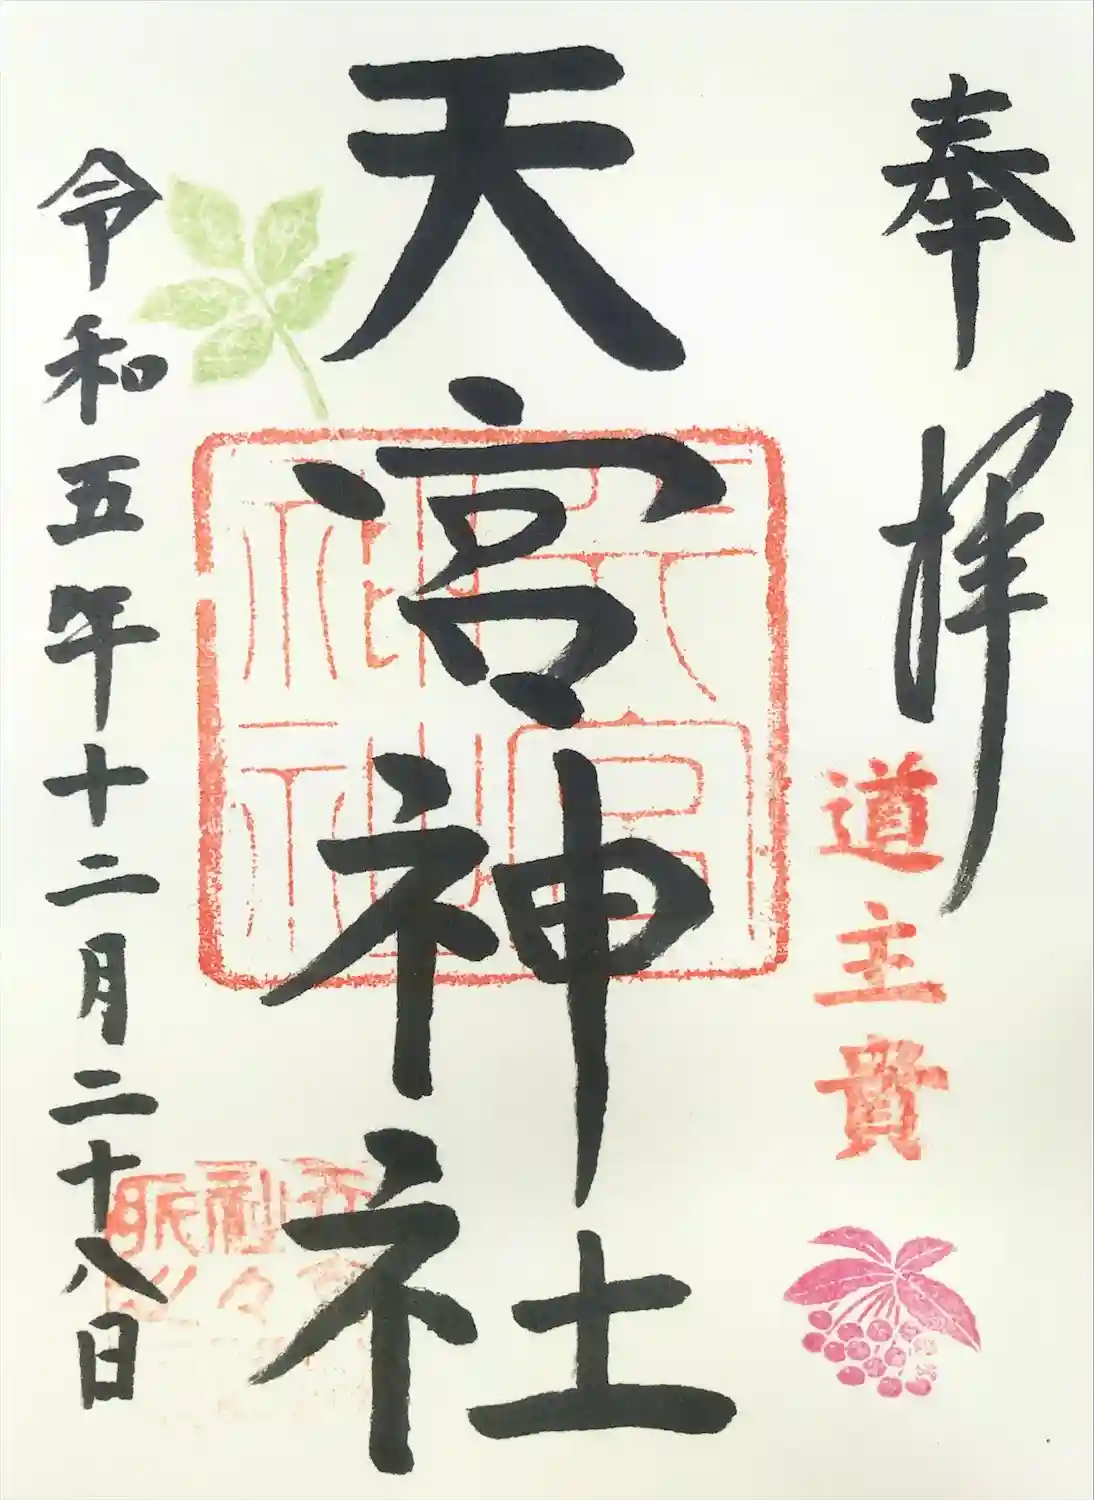 奉拝
道主貴
天宮神社
天宮神社
令和五年十二月二十八日